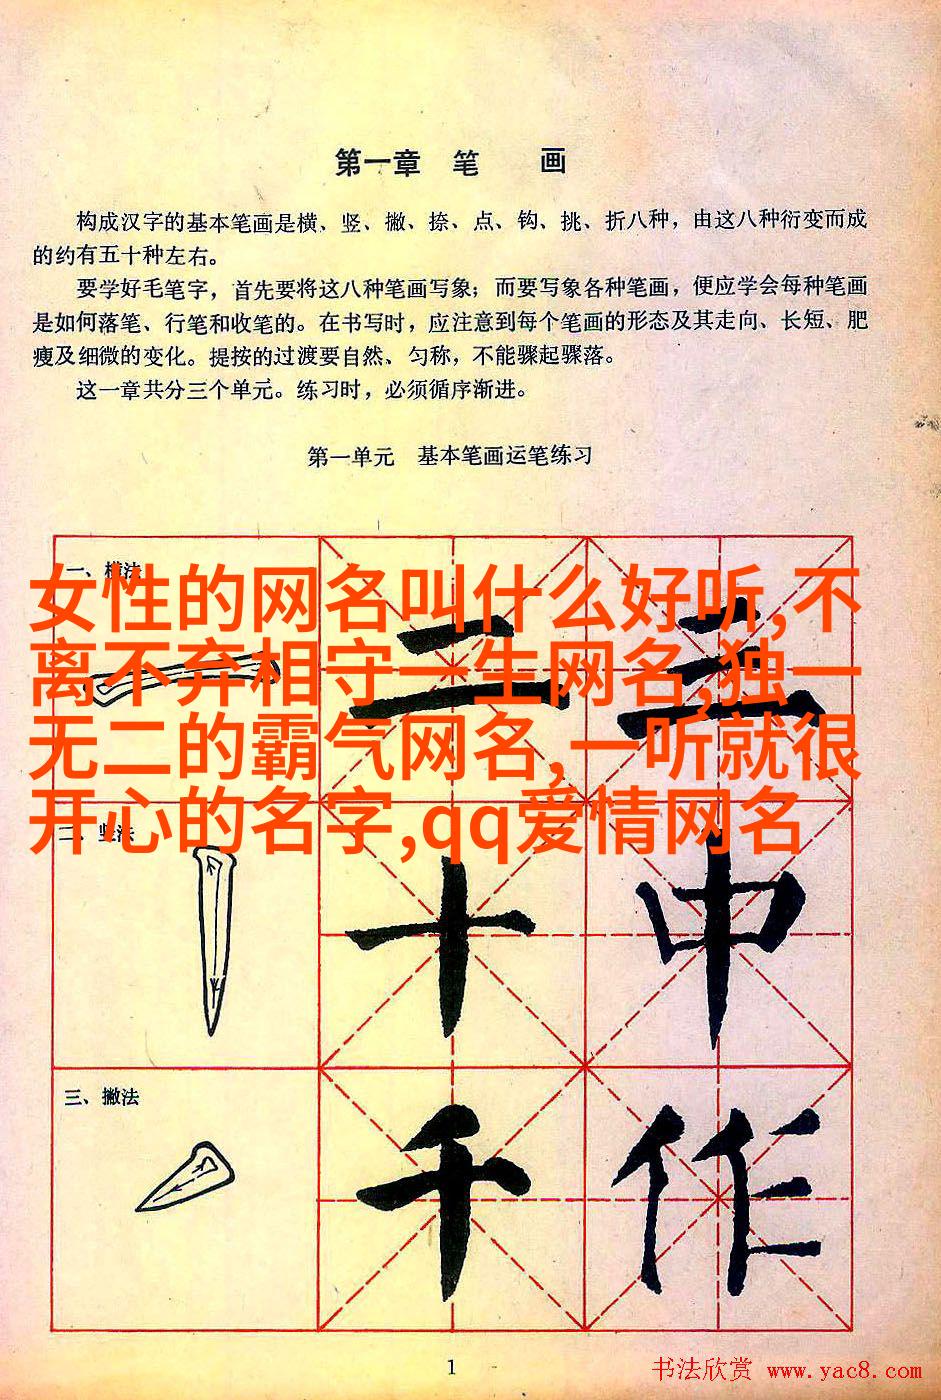 第一章 笔 画
构成汉字的基本笔画是横、竖、撇、捺、点、钩、挑、折八种，由这八种衍变而成
的约有五十种左右。
要学好毛笔字，首先要将这八种笔画写象；而要写象各种笔画，便应学会每种笔画
是如何落笔、行笔和收笔的。在书写时，应注意到每个笔画的形态及其走向、长短、肥
瘦及细微的变化。提按的过渡要自然、匀称，不能骤起骤落。
这一章共分三个单元。练习时，必须循序渐进。
第一单元 基本笔画运笔练习
一、横法
女性的网名叫什么好听,不
离不弃相守一生网名,独一
无二的霸气网名,一听就很
开心的名字,qq爱情网名
二 三
二、竖法
十 中
三、撇法
千 作
1
书法欣赏 www.yac8.com